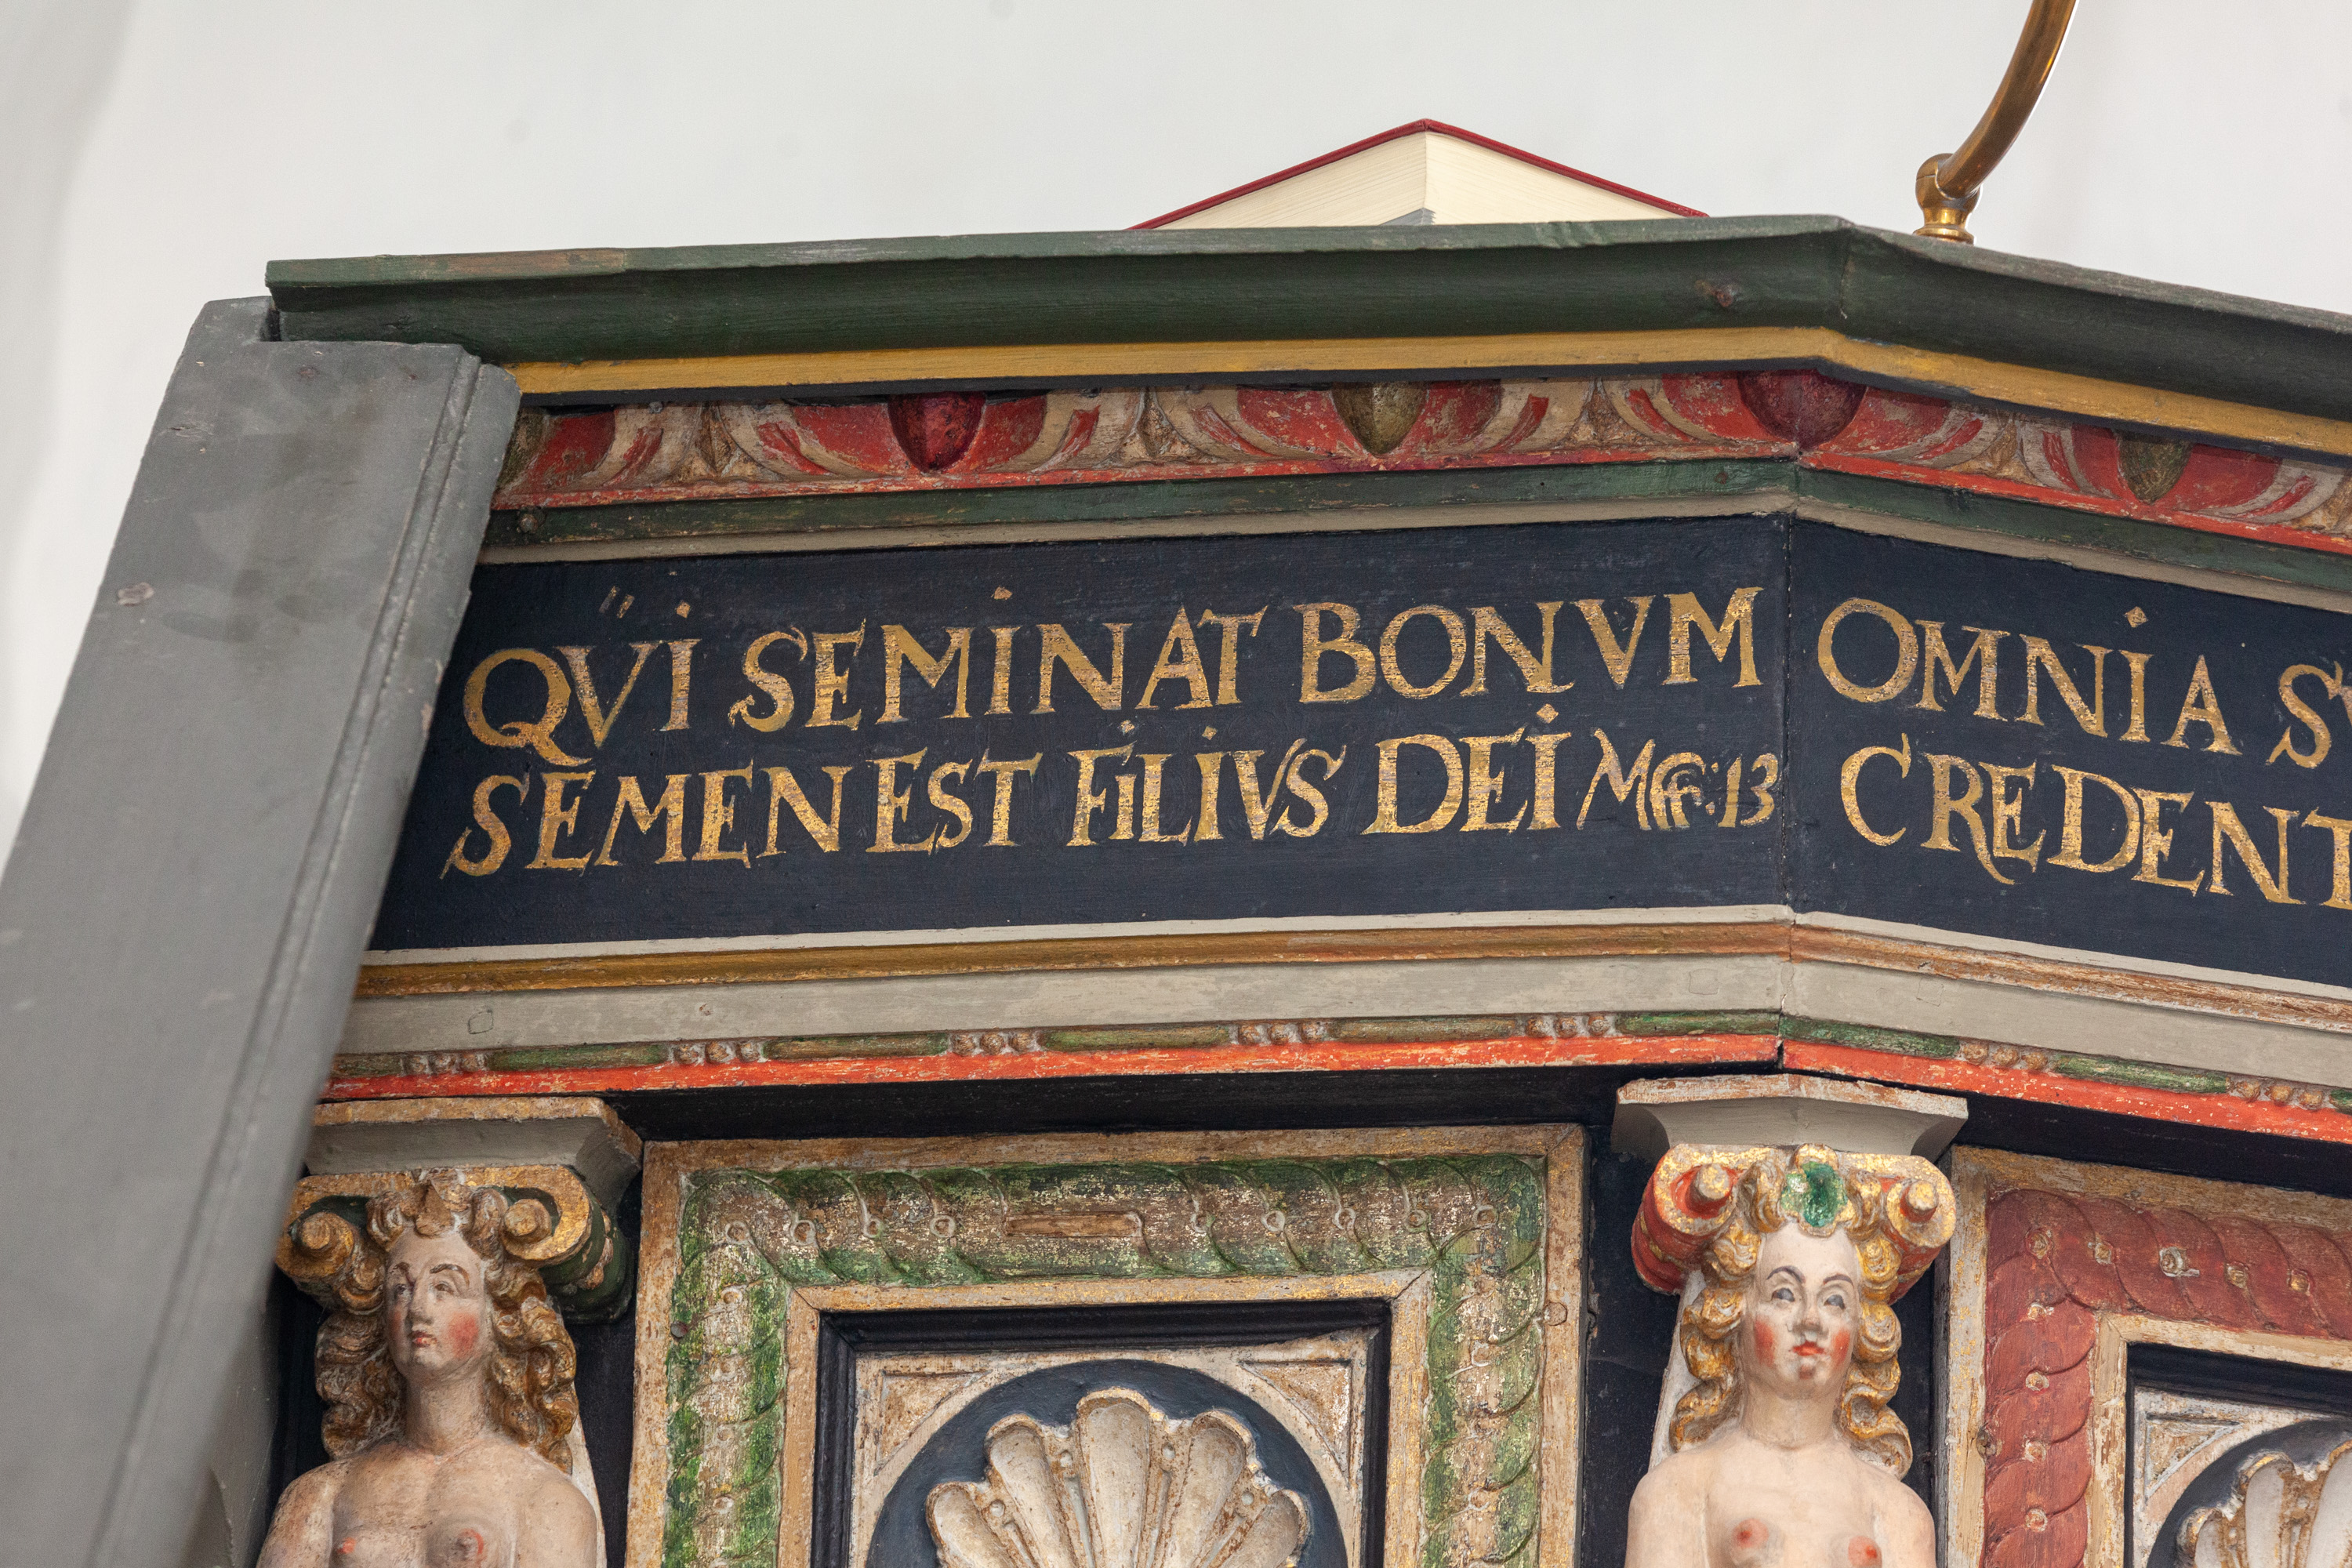 QVI SEMINAT BONVM
SEMEN EST FILIVS DEI Mat: 13
OMNIA S
CREDENT